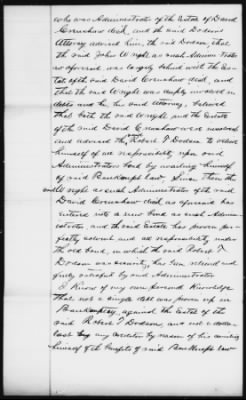 who was Administrator of the Estate of David
Crenshaw decd, and the said Dodson's
Attorney advised him, the said Dodson, that
the said John Wright, as such Administrator
as aforesaid was largely behind with the Es-
tate of the said David Crenshaw decd, and
that the said Wright was deeply involved in
debts and he, his said Attorney, believed
that both the said Wright and the Estate
of the said David Crenshaw were insolvent
and advised the said Robert T Dodson to relieve
himself of all responsibility upon said
Administrators bond by availing himself
of said Bankrupt law, Since then the
said Wright as such Administrator of the said
David Crenshaw decd as aforesaid has
entered into a new bond as such Admin-
istrator, and said Estate has proven per-
fectly solvent and all responsibility under
the old bond, in which the said Robert T.
Dodson was security, has been relieved and
fully satisfied by said Administrator
I Know of my own personal Knowledge
that not a single debt was proven up in
Bankruptcy, against the Estate of the
said Robert T Dodson, and not a dollar
lost by any creditor by reason of his availing
himself of the benefits of said Bankrupt law